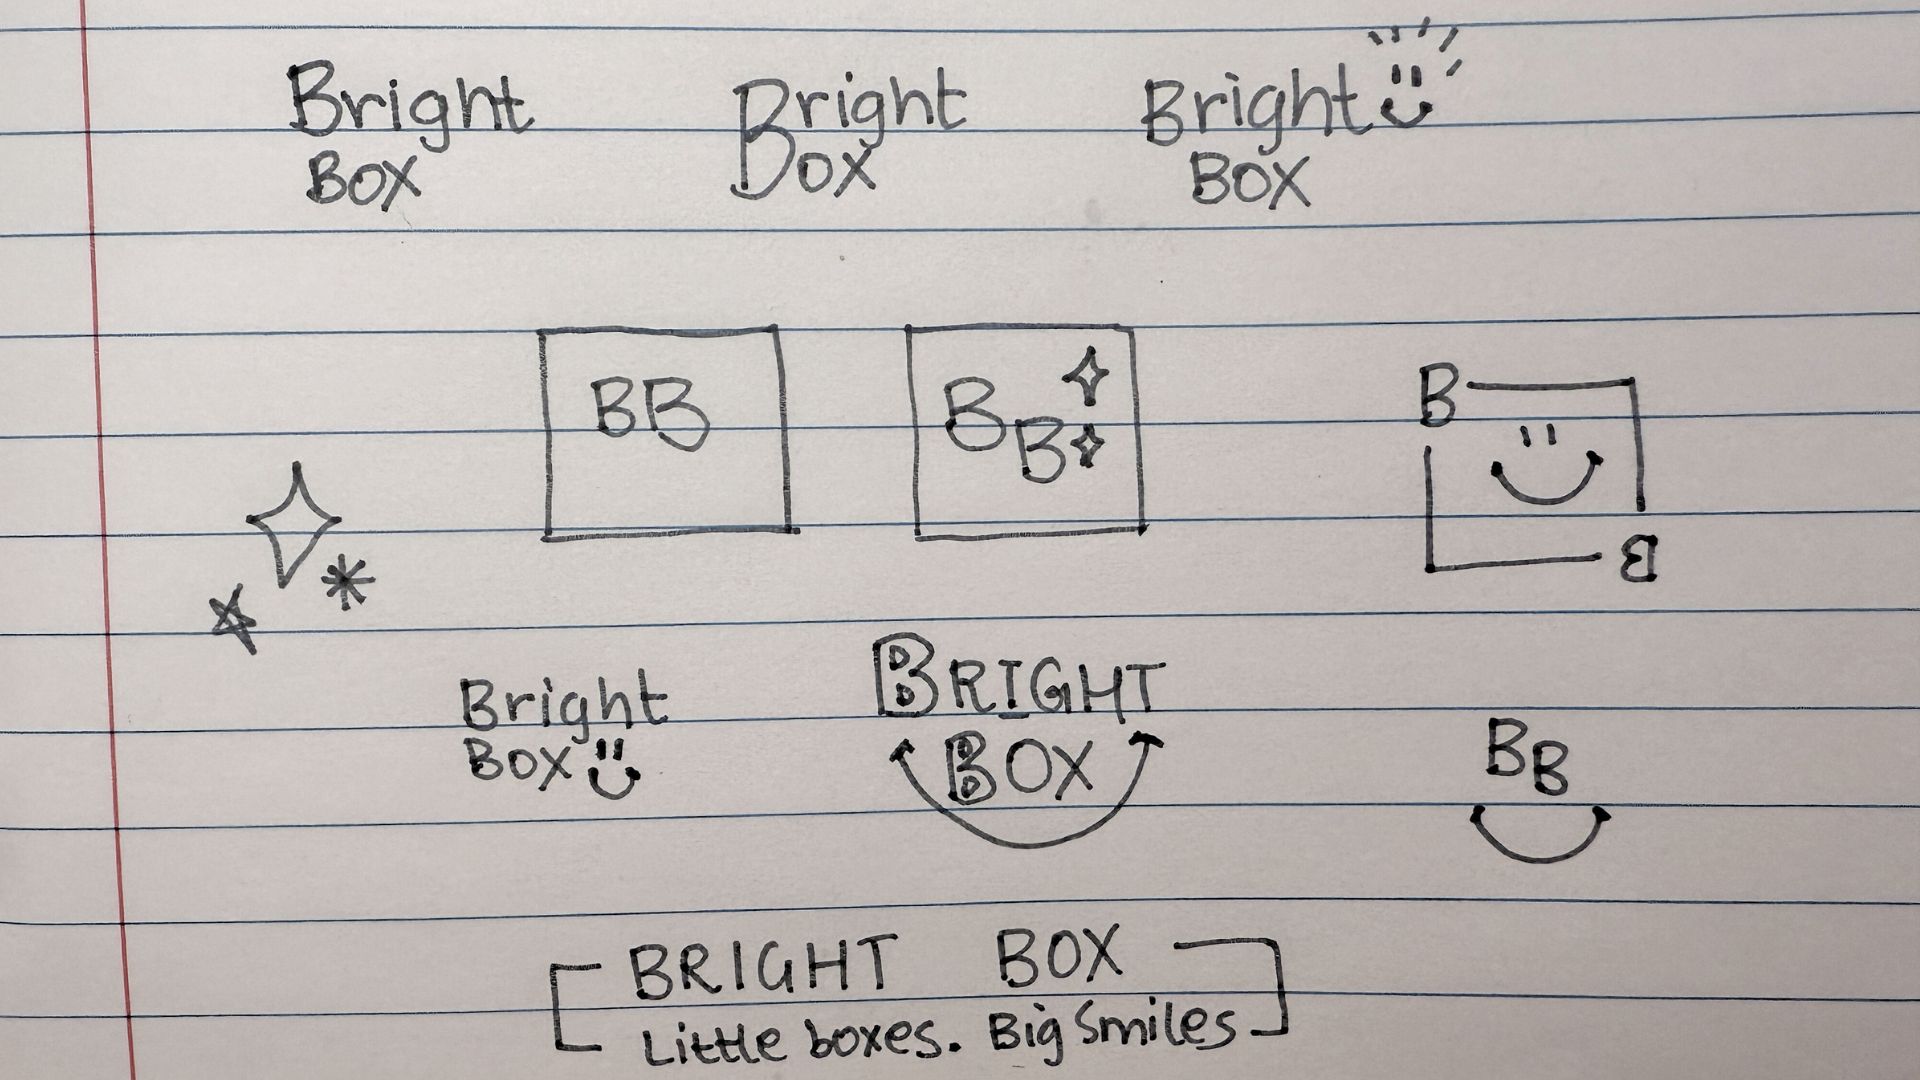 Bright
BOX
Bright
Box
Bright
BOX
BB
B
B
B
B
Bright
BOX
BRIGHT
BOX
B
B
BRIGHT BOX
Little boxes. Big Smiles